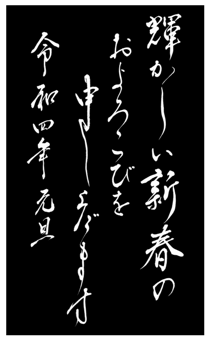 輝かしい新春の
およろこびを
申し上げます
令和四年 元旦